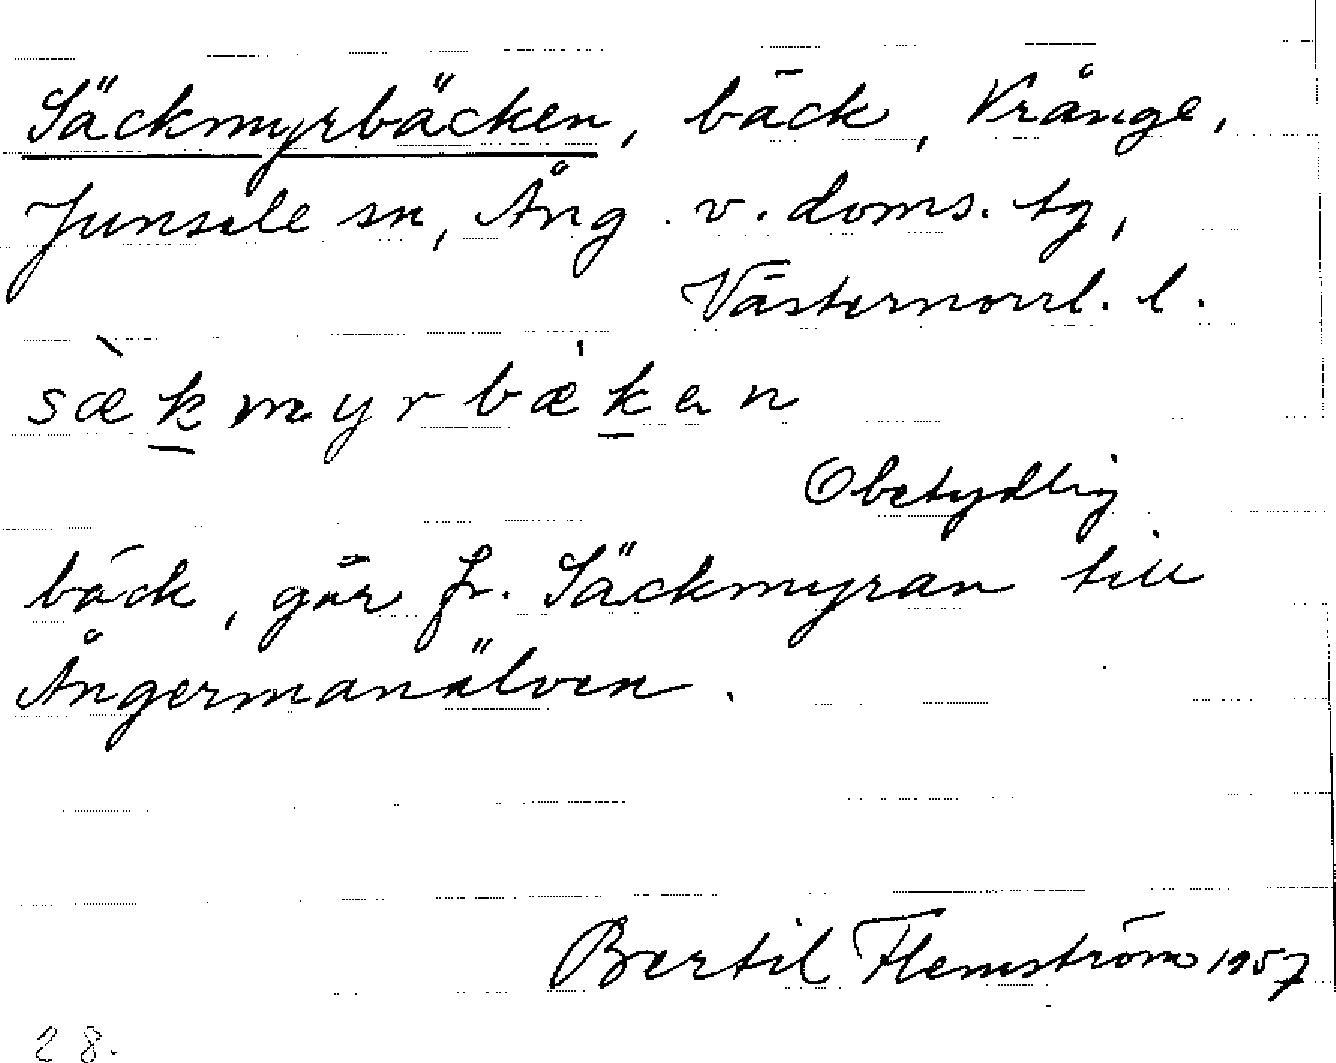 Säckmyrbäcken, bäck, Vrånge,
Junsele sn, Ång. v. doms. tg,
Västernorrl. l.
sæ̀kmyrbæ̍ken
Obetydlig
bäck, går fr. Säckmyran till
Ångermanälven.
Bertil Flemström 1957
28.